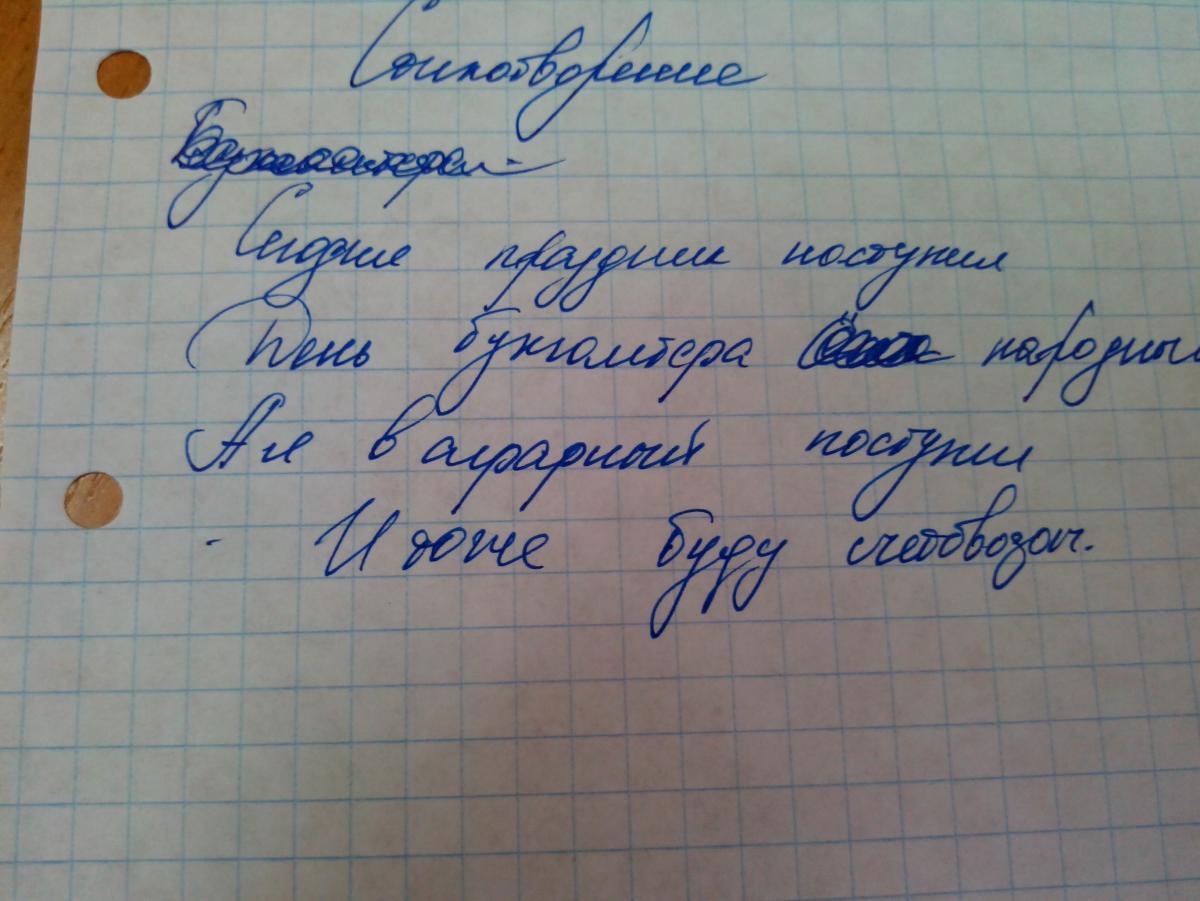 Стихотворение
Сегодня праздник наступил
День бухгалтера народный
А я в аграрный поступил
И тоже буду счетоводом.